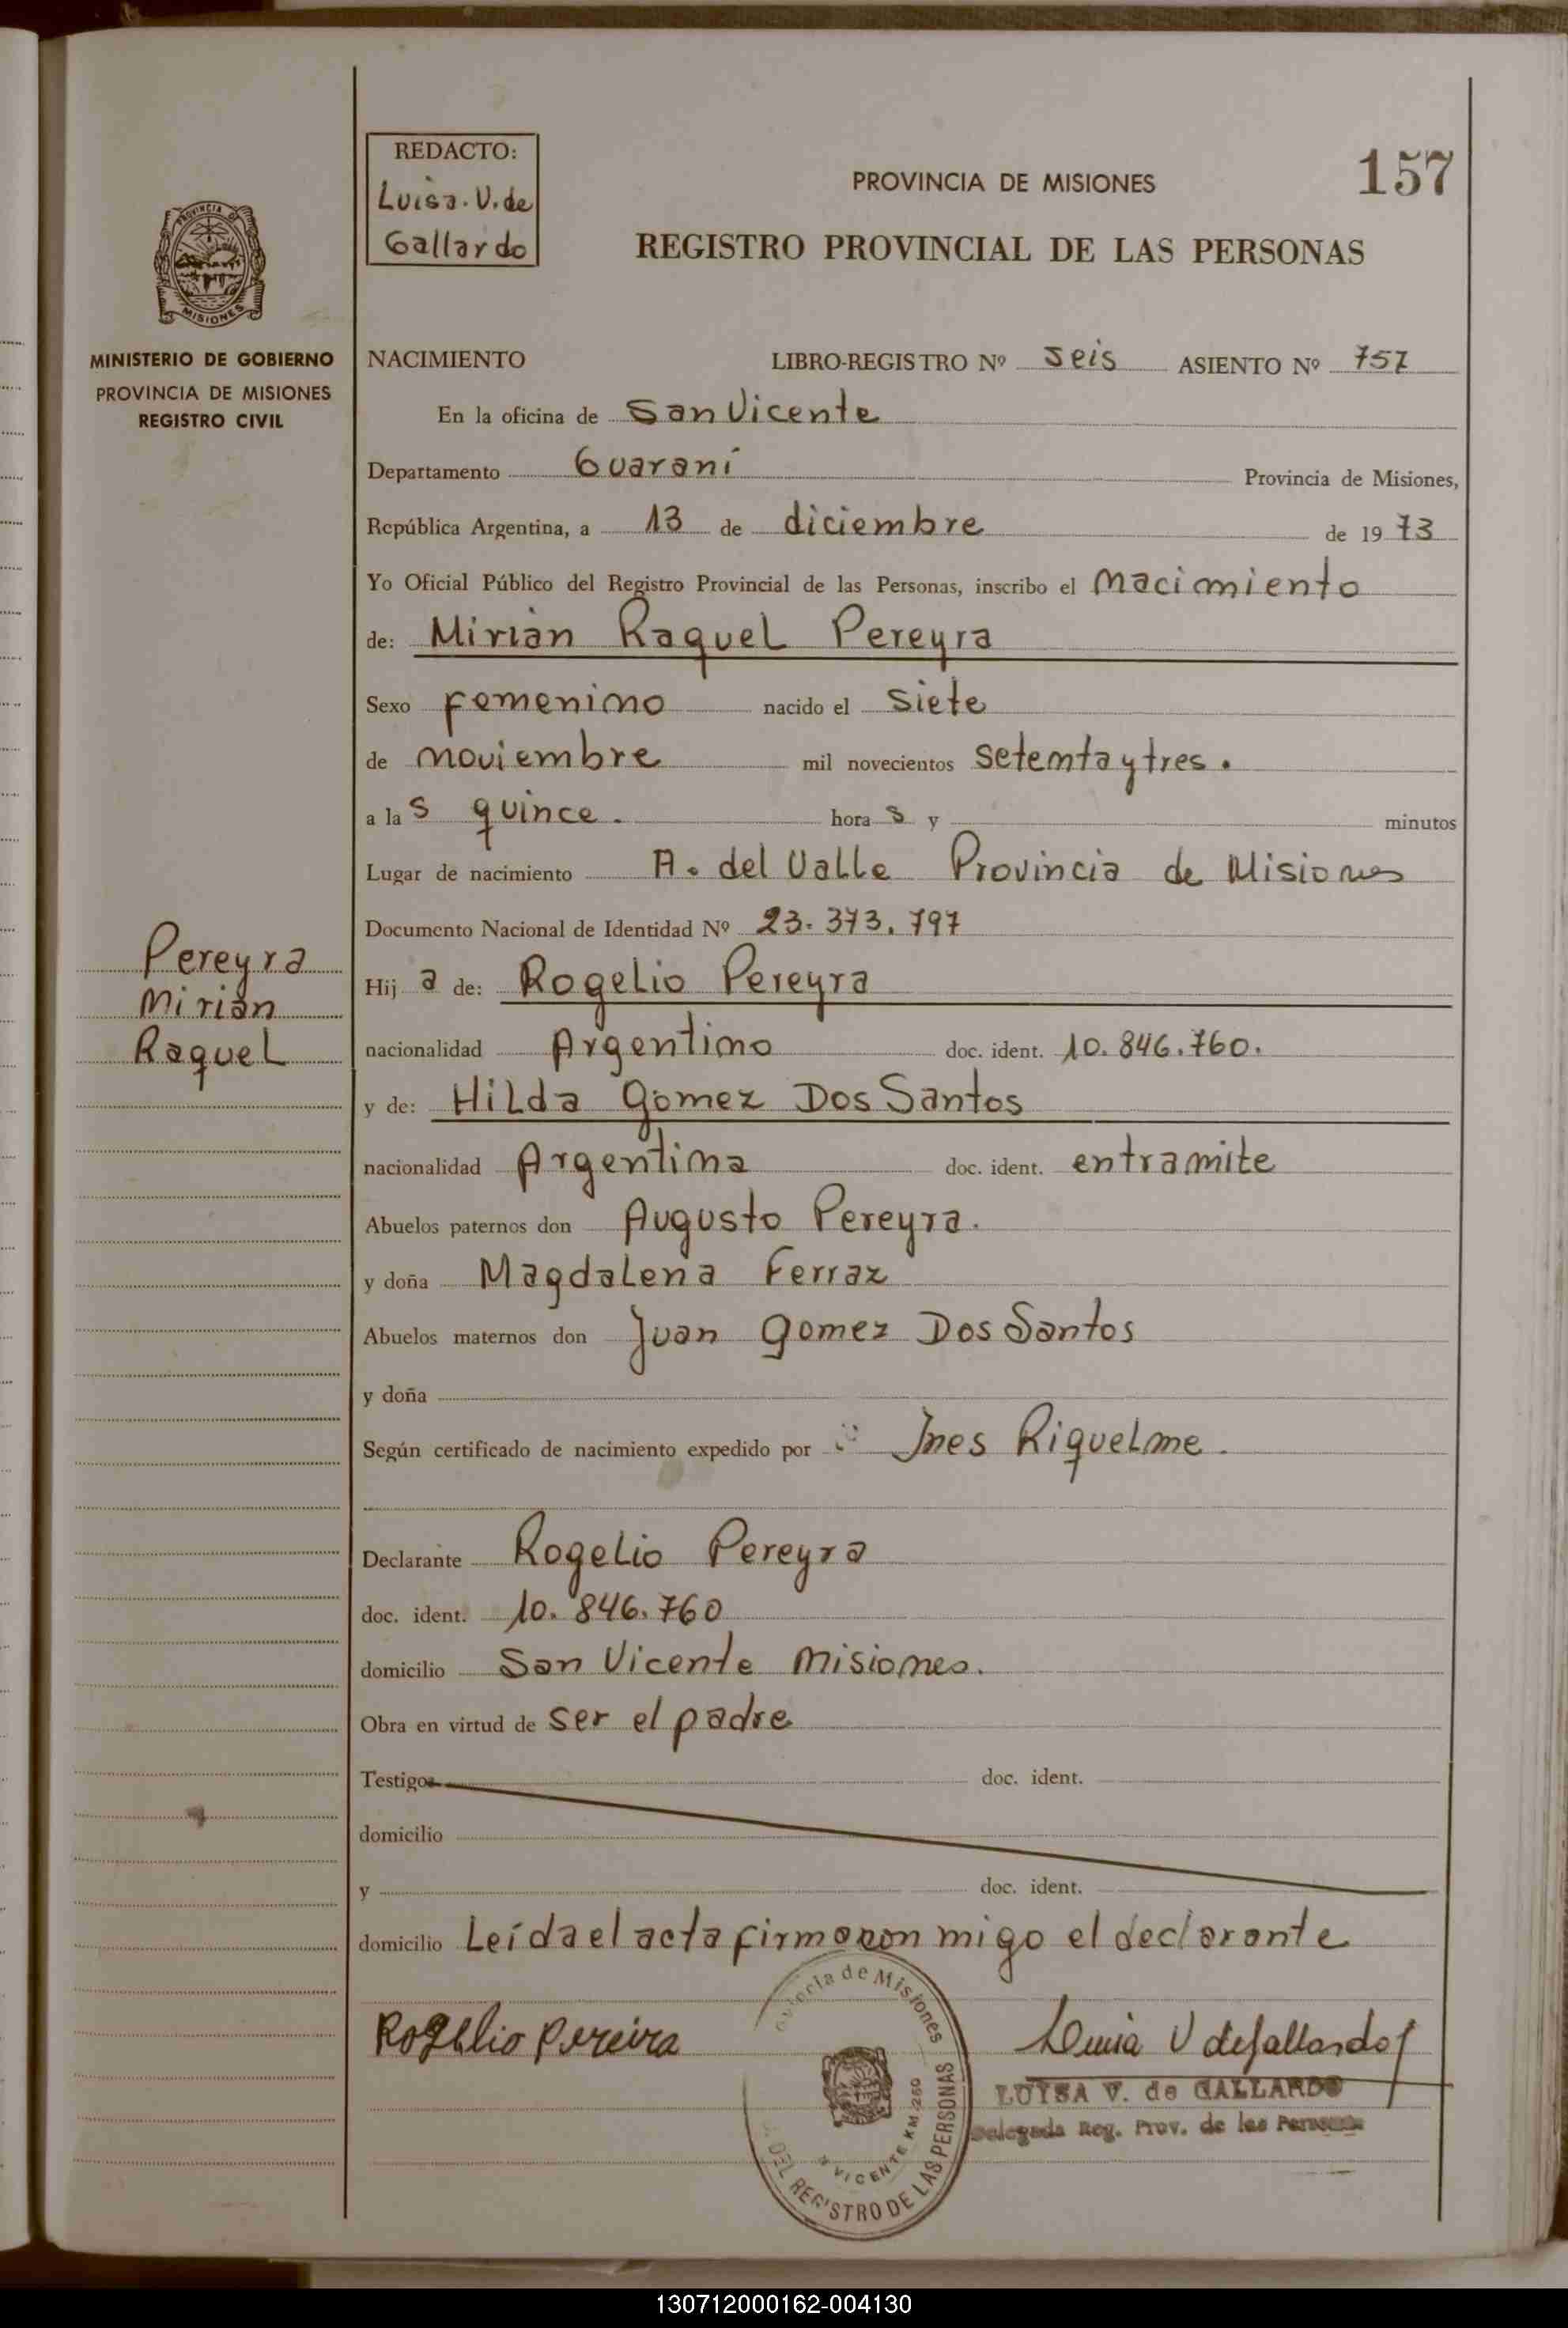 REDACTO:
Luisa. V. de
Gallardo
PROVINCIA DE MISIONES
157
REGISTRO PROVINCIAL DE LAS PERSONAS
PROVINCIA DE
MISIONES
MINISTERIO DE GOBIERNO
PROVINCIA DE MISIONES
REGISTRO CIVIL
NACIMIENTO LIBRO-REGISTRO Nº seis ASIENTO Nº 757
En la oficina de San Vicente
Departamento Guaraní Provincia de Misiones,
República Argentina, a 13 de diciembre de 1973
Yo Oficial Público del Registro Provincial de las Personas, inscribo el nacimiento
de: Mirian Raquel Pereyra
Sexo femenino nacido el siete
de noviembre mil novecientos setenta y tres.
a las quince. horas y minutos
Lugar de nacimiento A. del Valle Provincia de Misiones
Documento Nacional de Identidad Nº 23.373.797
Pereyra
Mirian
Raquel
Hija de: Rogelio Pereyra
nacionalidad Argentino doc. ident. 10.846.760.
y de: Hilda Gomez Dos Santos
nacionalidad Argentina doc. ident. entramite
Abuelos paternos don Augusto Pereyra.
y doña Magdalena Ferraz
Abuelos maternos don Juan Gomez Dos Santos
y doña
Según certificado de nacimiento expedido por Ines Riquelme.
Declarante Rogelio Pereyra
doc. ident. 10.846.760
domicilio San Vicente Misiones.
Obra en virtud de ser el padre
Testigos doc. ident.
domicilio
y doc. ident.
domicilio Leída el acta firma conmigo el declarante
Rogelio Pereira
Luisa V de Gallardo
LUISA V. de GALLARDO
Delegada Reg. Prov. de las Personas
de Misiones
DEL REGISTRO DE LAS PERSONAS
VICENTE KM 260
130712000162-004130